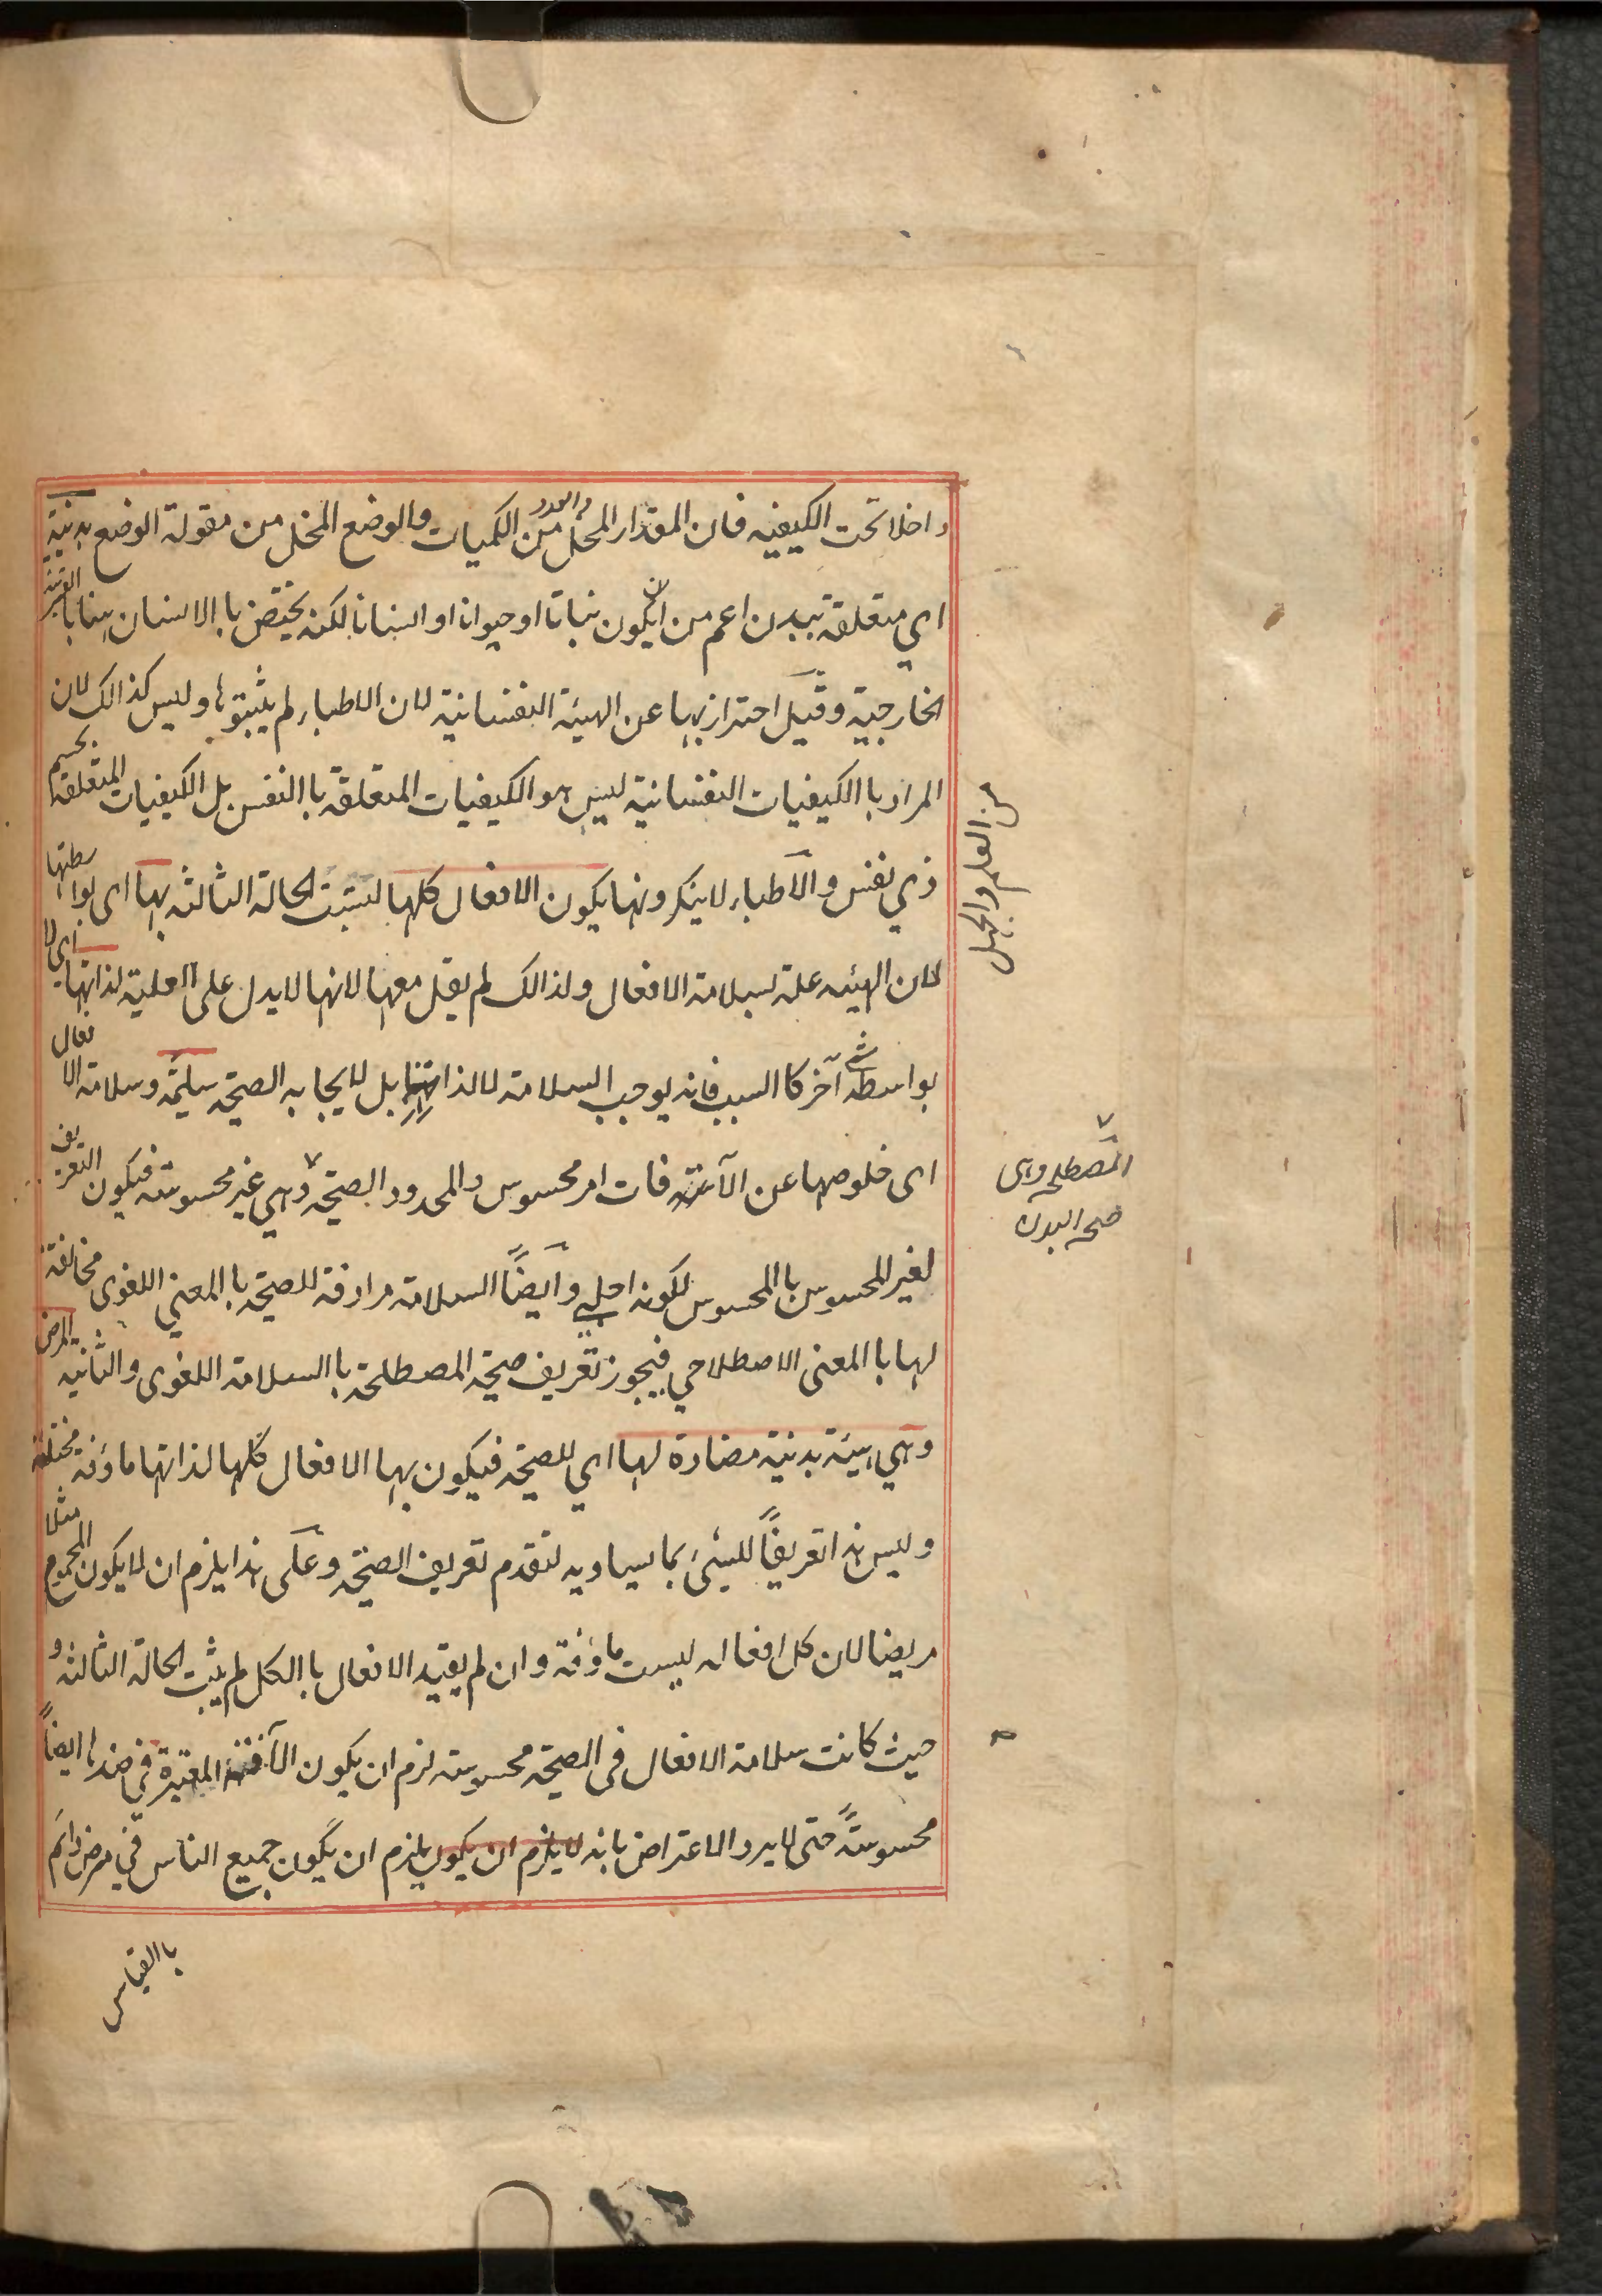 داخلا تحت الكيفيه فان المقدار المخل والعدد من الكميات والوضع المخل من مقولة الوضع بدنية
اي متعلقة ببدن اعم من ان يكون نباتا او حيوانا او انسانا لكنه يختص با الانسان ههنا با لقرينة
الخارجية وقيل احتراز بها عن الهيئة النفسانية لان الاطباء لم يثبتوها وليس كذالك لان
المراد با الكيفيات النفسانية ليس هو الكيفيات المتعلقة با النفس بل الكيفيات المتعلقة بجسم
ذي نفس والاطباء لا ينكرونها يكون الافعال كلها لتثبت الحالة الثالثه بها اى بواسطتها
لان الهيئه علة لسلامة الافعال ولذالك لم يقل معها لانها لا يدل على العلية لذاتها اي لا
بواسطه شئ آخر كا السبب فانه يوجب السلامة لا لذاتها بل لايجابه الصحة سليمة وسلامة الافعال
اى خلوصها عن الآفة فات امر محسوس والمحدود الصحة وهي غير محسوسة فيكون التعريف
لغير المحسوس با المحسوس لكونه اجلي وايضاً السلامة مرادفة للصحة با المعني اللغوى مخالفة
لها با المعنى الاصطلاحي فيجوز تعريف صحة المصطلحة با السلامة اللغوى والثانيه المرض
وهي هيئة بدنية مضادة لها اي للصحة فيكون بها الافعال كلها لذاتها ماؤفة مختلة
وليس هذا تعريفاً للشئ بما يساويه لتقدم تعريف الصحة وعلى هذا يلزم ان لا يكون المحموم مثلا
مريضا لان كل افعاله ليست ماؤفة وان لم يقيد الافعال با الكل لم يثبت الحالة الثالثه و
حيث كانت سلامة الافعال فى الصحة محسوسة لزم ان يكون الآفة المعتبرة في ضدها ايضاً
محسوسةً حتى لا يرد الاعتراض بانه لا يلزم ان يكون يلزم ان يكون جميع الناس في مرض دائم
با القياس
من العلم والجهل
المصطلح وهى
صحه البدن